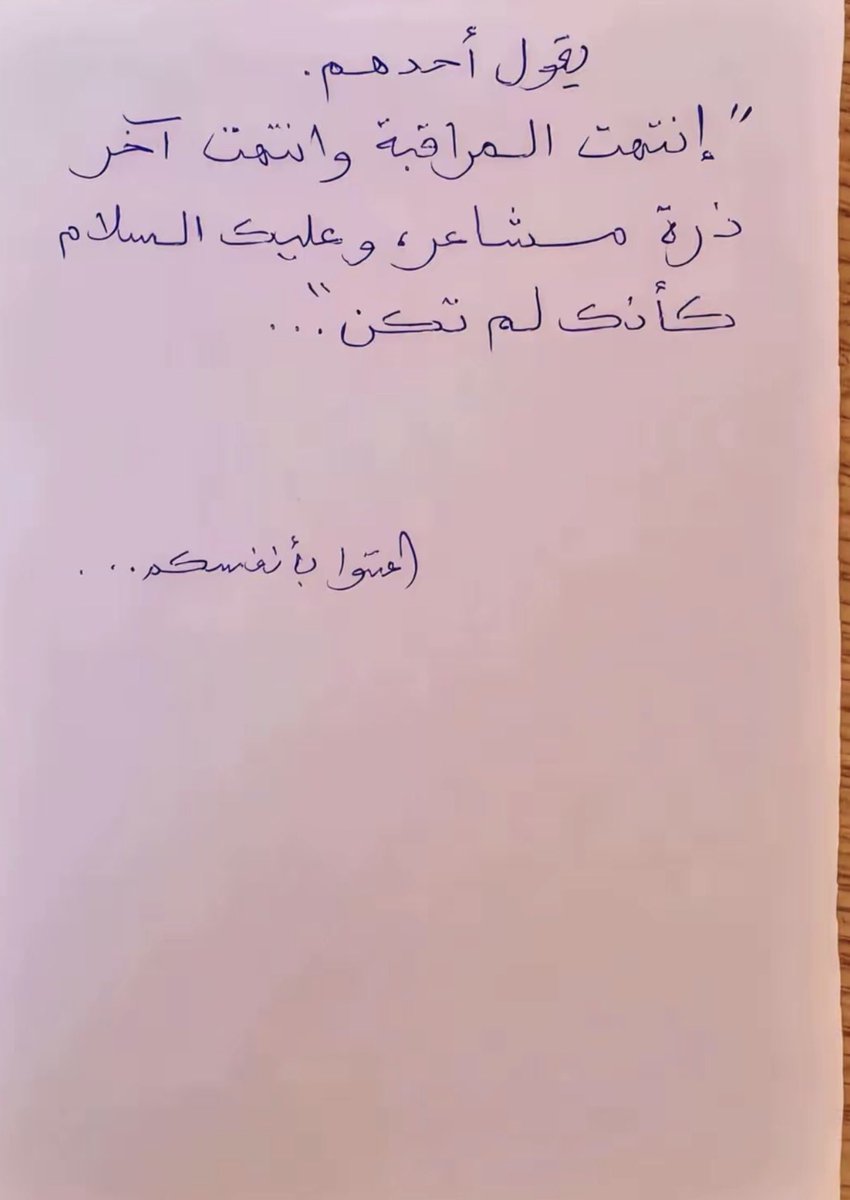 يقول أحدهم.
"إنتهت المراقبة وانتهت آخر
ذرة مشاعر، وعليك السلام
كأنك لم تكن"...
اعتنوا بأنفسكم...